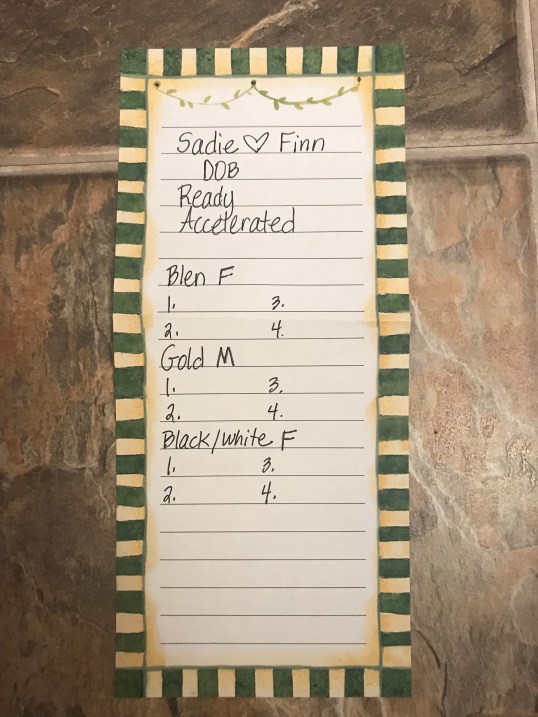 Sadie ♡ Finn
DOB
Ready
Accelerated
Blen F
1. 3.
2. 4.
Gold M
1. 3.
2. 4.
Black/white F
1. 3.
2. 4.